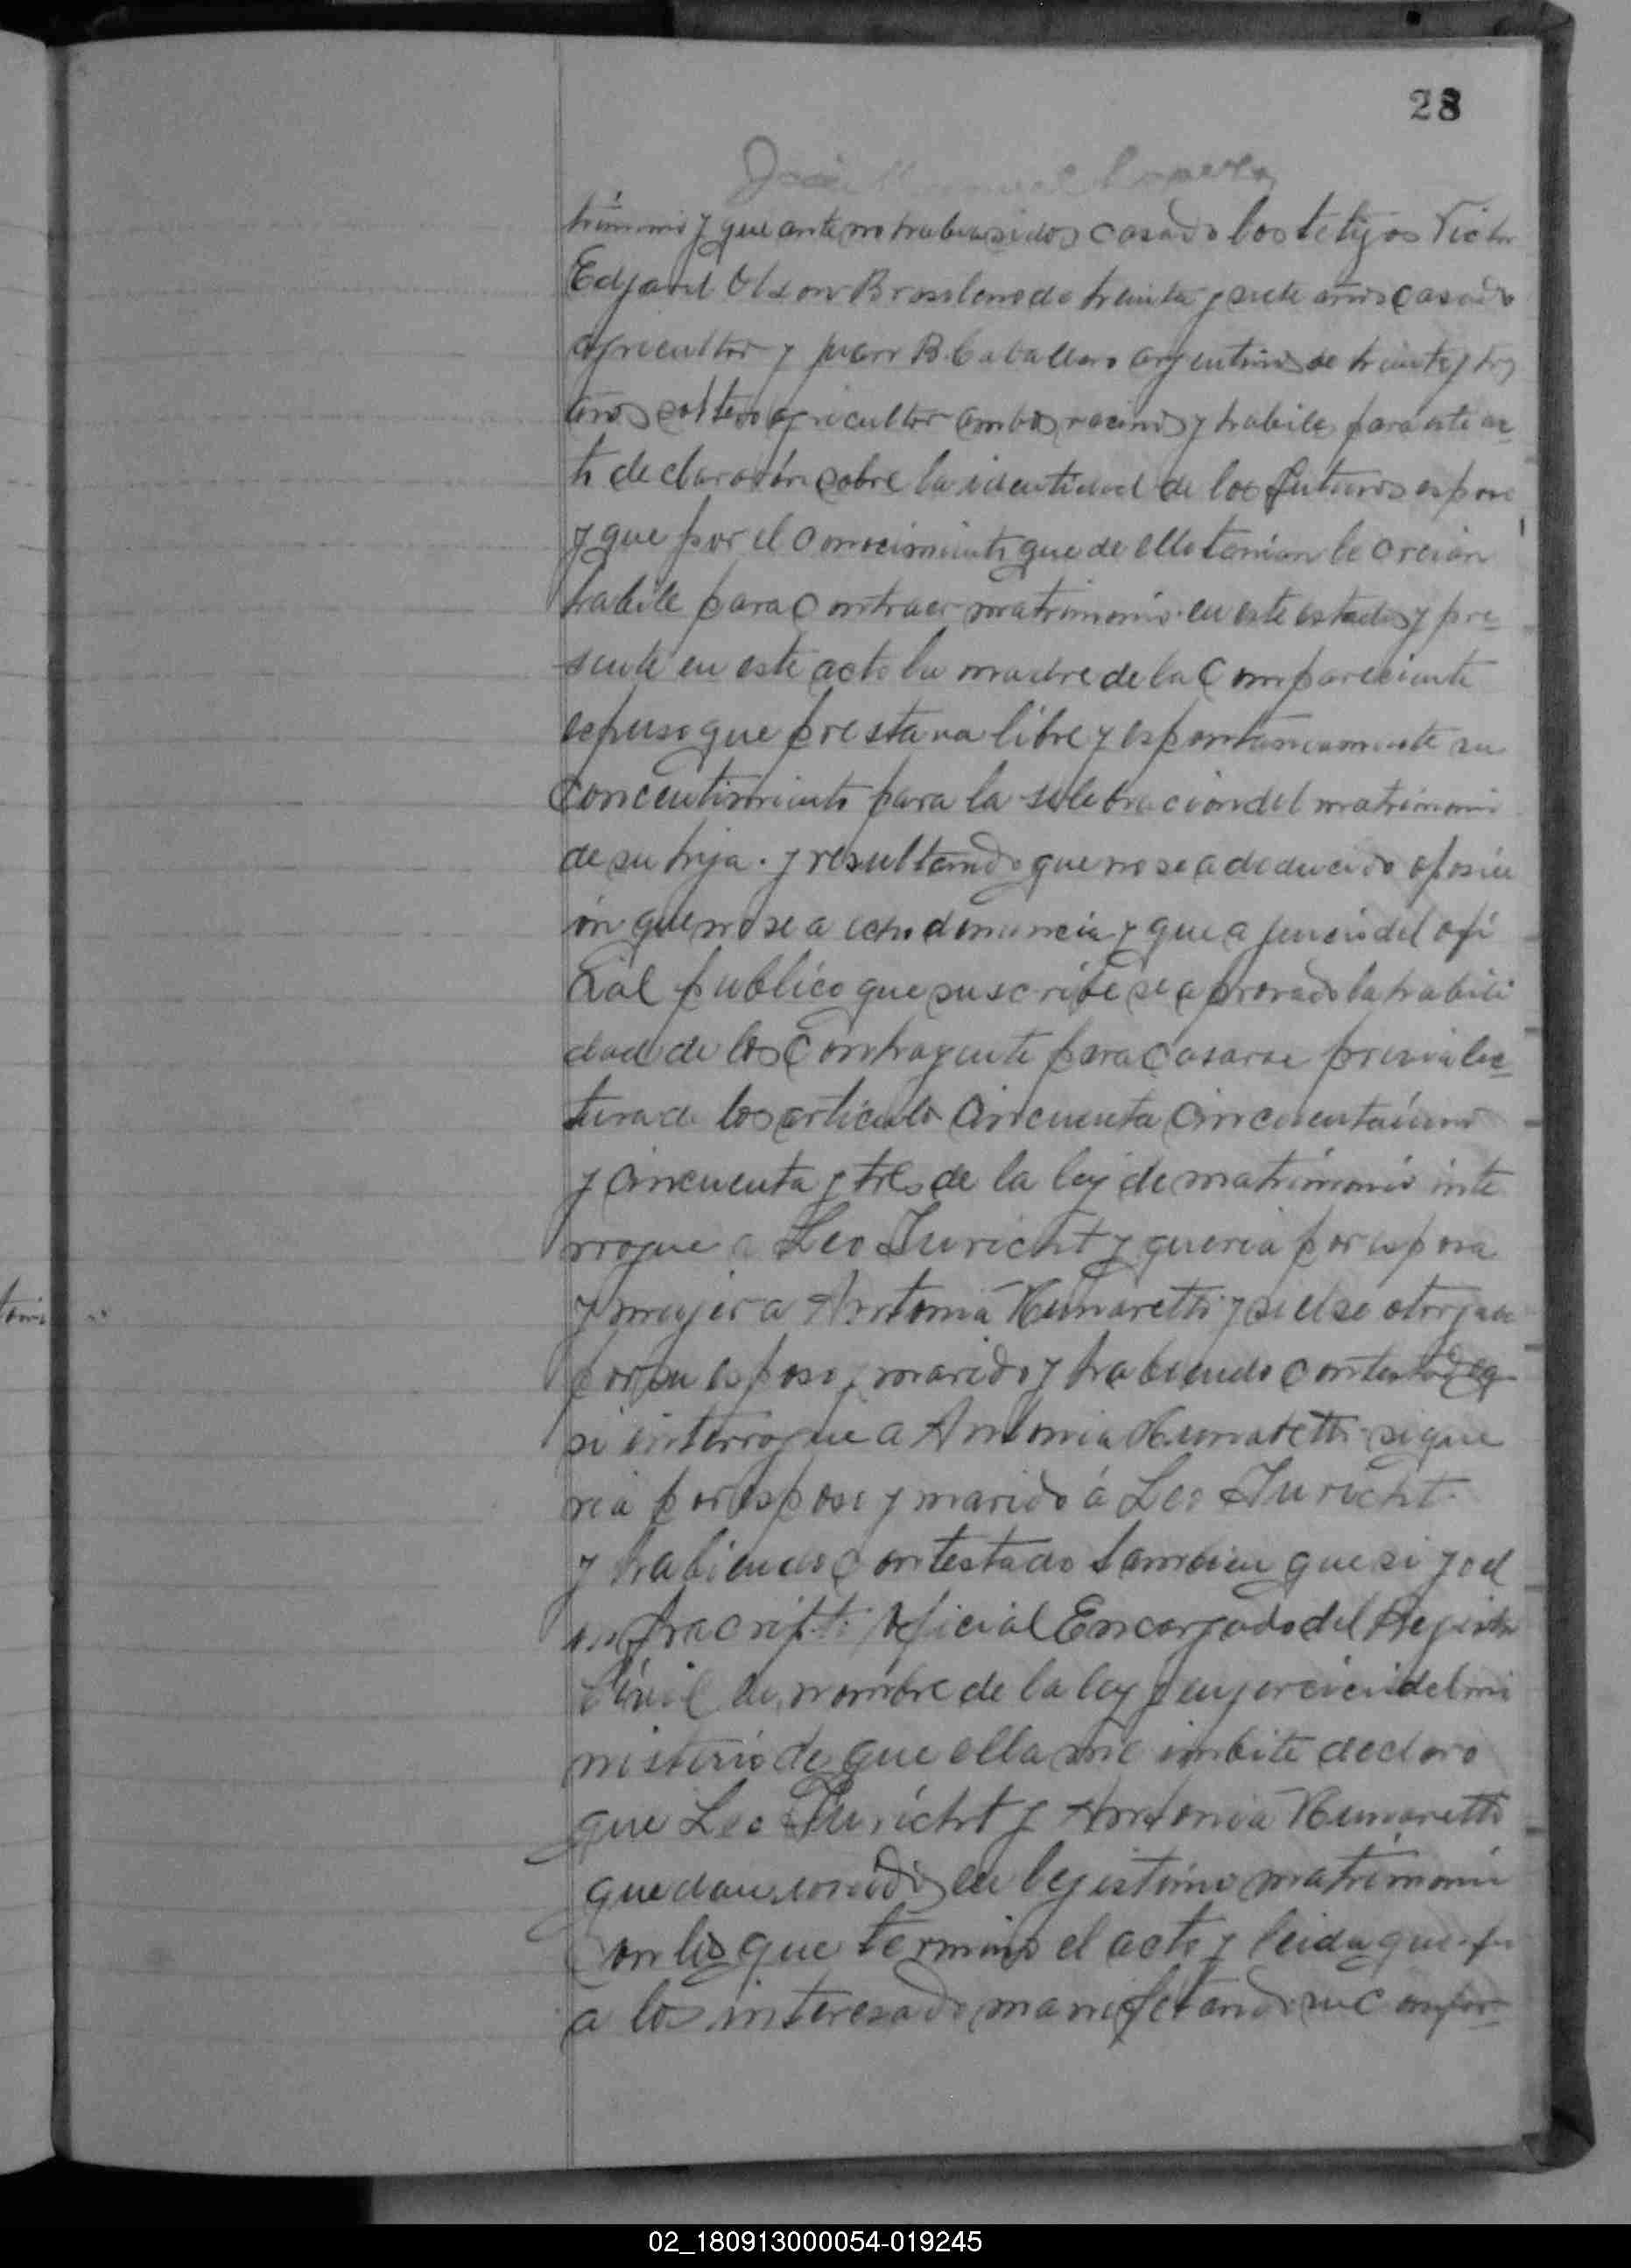 28
Juan Manuel
trimonio y que ante no habian sidos casado los tetigos Victor
Edgard Olson Brasilero de treinta y siete años casado
agricultor y Juan B. Caballero argentino de treinta y tres
años soltero agricultor ambos vecinos y habiles para este ac-
to declararon sobre la identidad de los futuros esposo
y que por el conocimiento que de ello tenian le creian
habile para contraer matrimonio en este estado y pre-
sente en este acto la madre de la compareciente
espuso que prestava libre y espontaneamente su
concentimiento para la selebracion del matrimonio
de su hija. y resultando que no se a deducido oposici
on que no se a echo denuncia y que a juicio del ofi
cial publico que suscribe se a provado la habili
dad de los contrayente para casarse previa lec-
tura de los articulo cincuenta cincuentaiuno
y cincuenta y tres de la ley de matrimonio inte
rrogue a Leo Juricht y queria por esposa
y mujer a Antonia Numaretti y si el se otorgava
por su esposo y marido y habiendo contestado q
si interrogue a Antonia Numaretti si que
ria por esposo y marido á Leo Juricht
y habiendo contestado tambien que si yo el
infracripto Oficial Encargado del Registro
Civil en nombre de la ley y en jercicio del mi
nisterio de que ella me inbite declaro
que Leo Juricht y Antonia Numaretti
quedan unidos en legistimo matrimonio
con los que termino el acto y leida que fu
a los interesado manifetando su confor-
02_180913000054-019245